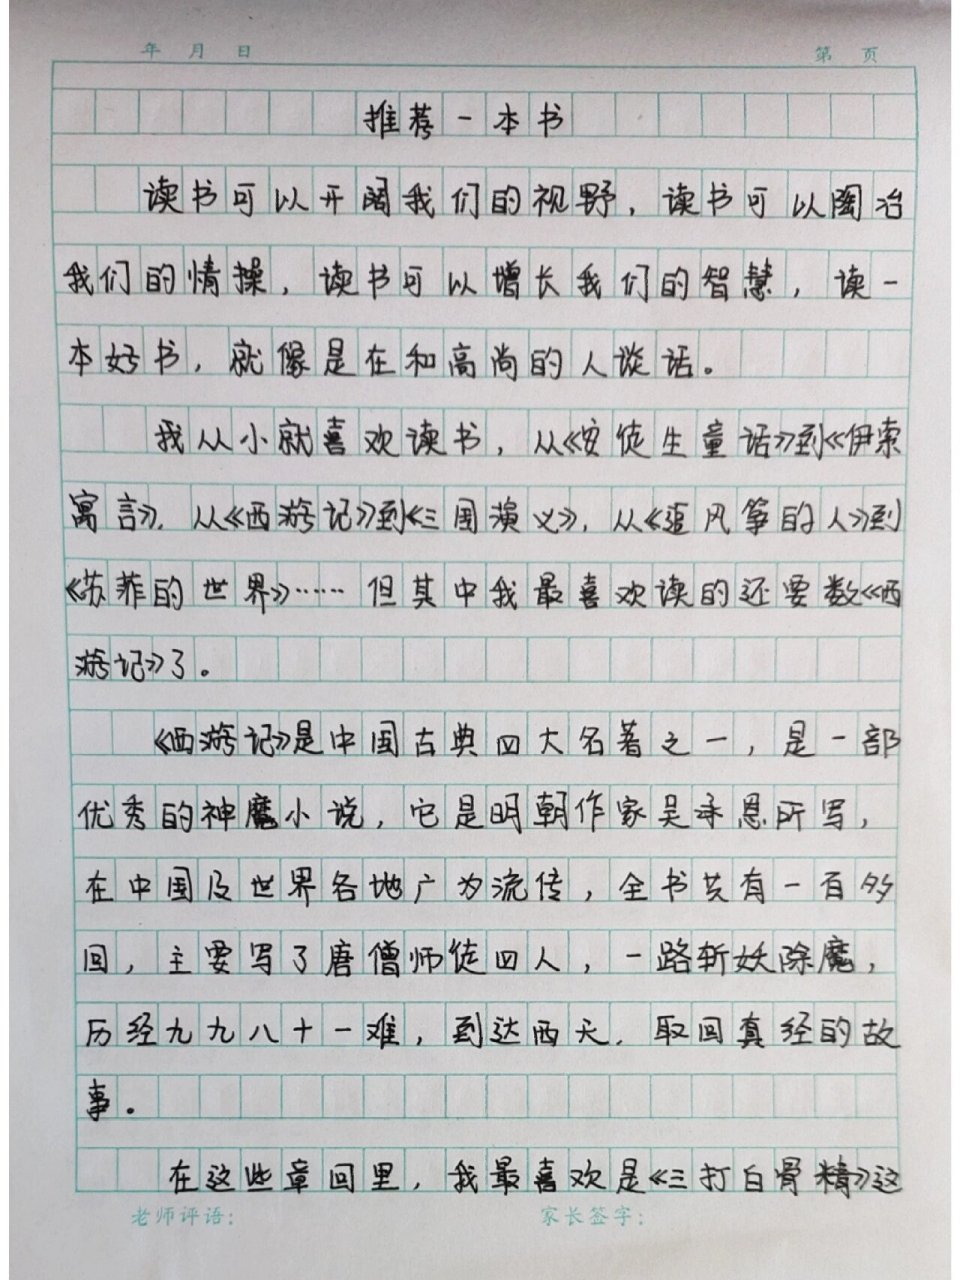 年 月 日 第 页
推荐一本书
读书可以开阔我们的视野，读书可以陶冶
我们的情操，读书可以增长我们的智慧，读一
本好书，就像是在和高尚的人谈话。
我从小就喜欢读书，从《安徒生童话》到《伊索
寓言》，从《西游记》到《三国演义》，从《追风筝的人》到
《苏菲的世界》……但其中我最喜欢读的还要数《西
游记》了。
《西游记》是中国古典四大名著之一，是一部
优秀的神魔小说，它是明朝作家吴承恩所写，
在中国及世界各地广为流传，全书共有一百多
回，主要写了唐僧师徒四人，一路斩妖除魔，
历经九九八十一难，到达西天，取回真经的故
事。
在这些章回里，我最喜欢是《三打白骨精》这
老师评语： 家长签字：